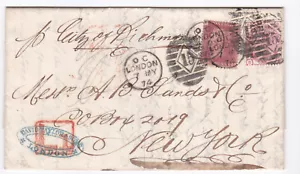 pr City of Richmond
L.P.C
LONDON
7 MY
74
Messrs A. B. Sands & Co
PO Box 2019
New York
LONDON